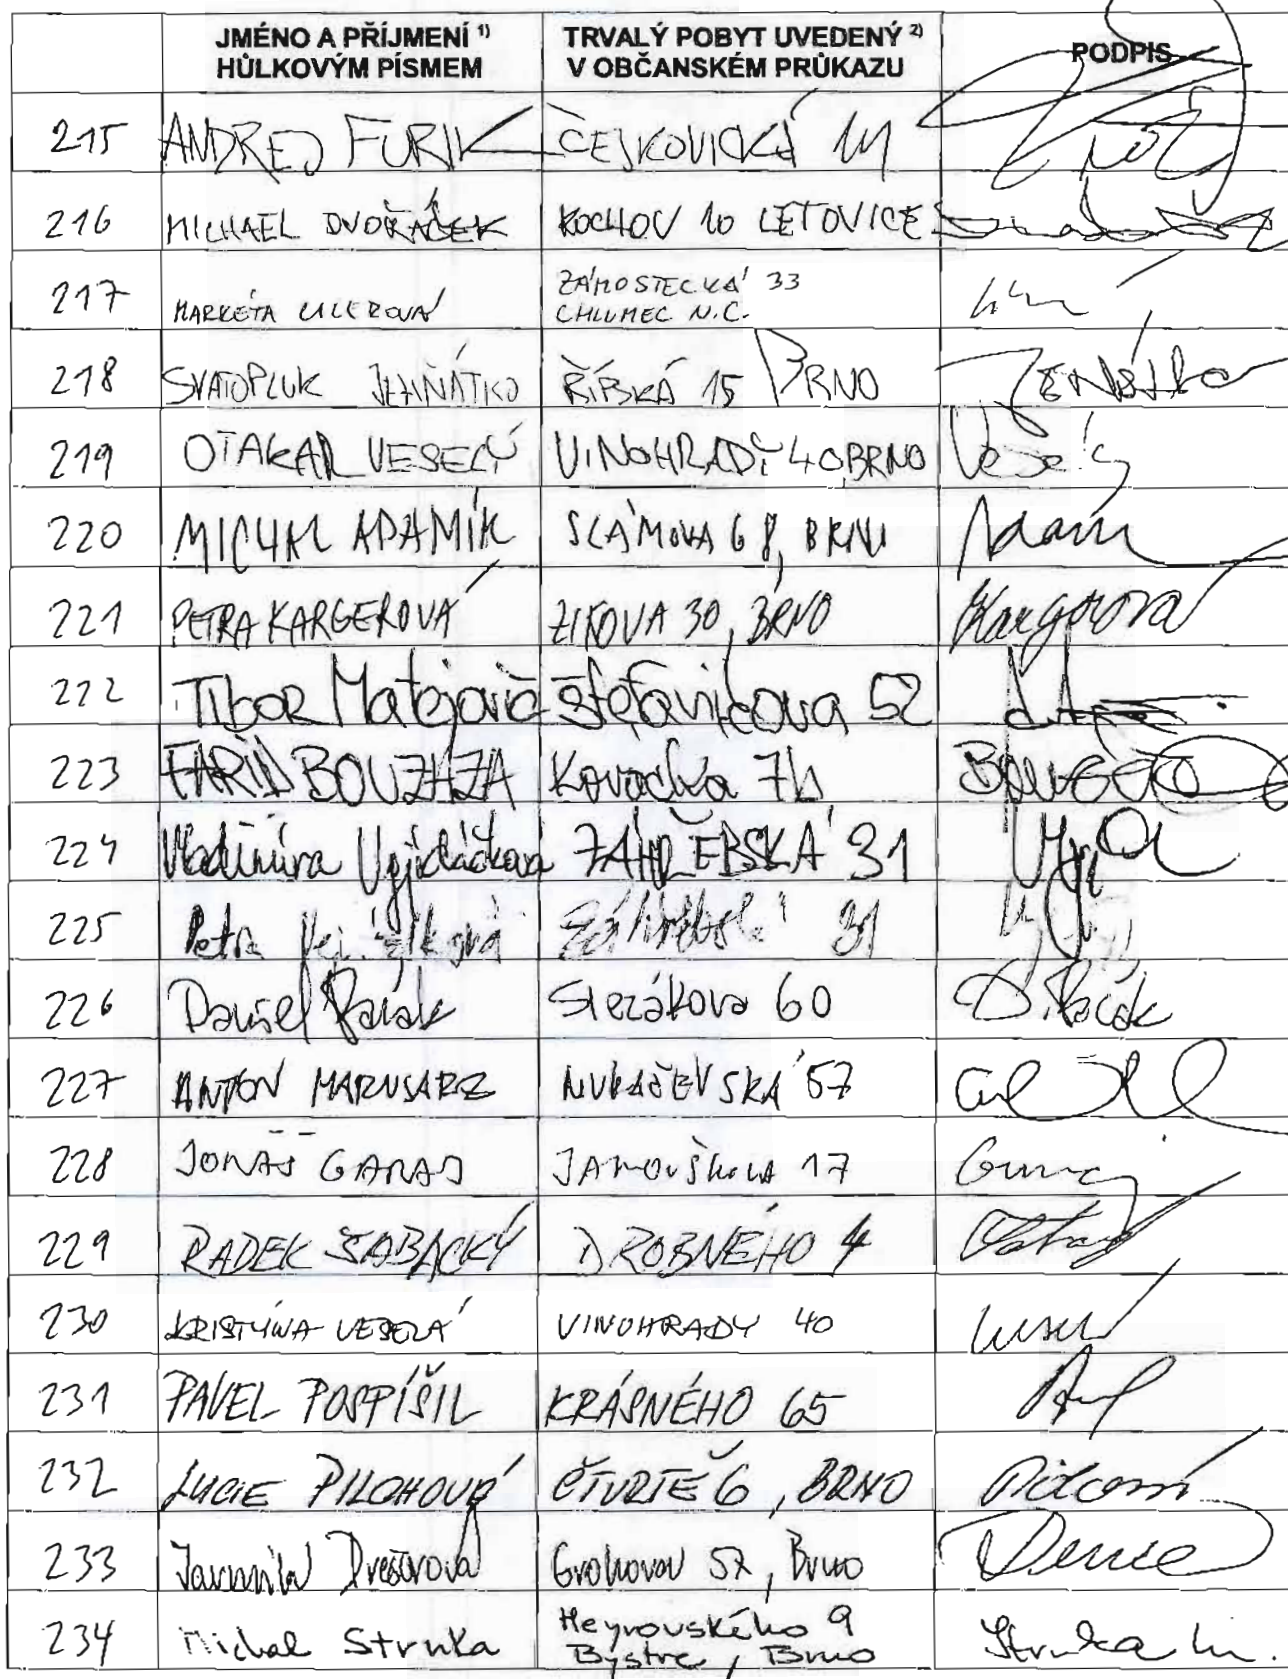 JMÉNO A PŘÍJMENÍ 1) TRVALÝ POBYT UVEDENÝ 2) PODPIS
HŮLKOVÝM PÍSMEM V OBČANSKÉM PRŮKAZU
215 ANDREJ FURIK ČEJKOVICKÁ
216 MICHAEL DVOŘÁČEK KOCHOV 10 LETOVICE
217 MARKÉTA ZÁMOSTECKÁ 33
CHLUMEC N.C.
218 SVATOPLUK JEHŇÁTKO ŘÍPSKÁ 15 BRNO
219 OTAKAR VESELÝ VINOHRADY 40, BRNO Veselý
220 MICHAL ADAMÍK SLÁMOVA 68, BRNO Adam
221 PETRA KARGEROVÁ ZIKOVA 30, BRNO Kargerová
222 TIBOR Matejovič Štefánikova 52
223 FARID BOUZHZA
224 Vladimíra 31
225 Petra 31
226 Daniel Slezákova 60
227 ANTON MARUSARZ MUKAČEVSKÁ 57
228 JONÁŠ GARAJ JANOUŠKOVA 17
229 RADEK ŠABACKÝ DROBNÉHO 4
230 KRISTÝNA VESELÁ VINOHRADY 40
231 PAVEL POSPÍŠIL KRÁSNÉHO 65
232 LUCIE PILOHOVÁ ČTVRTĚ 6, BRNO
233 Jaromila Grohova 57, Brno
234 Michal Strnka Heyrovského 9 Strnka M.
Bystrc, Brno